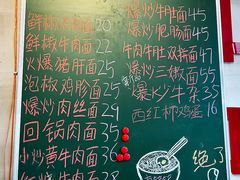 鲜椒肉肉面20
鲜椒牛肉面22
火爆猪肝面25
泡椒鸡胗面25
爆炒肉丝面29
回锅肉面35
小炒黄牛肉面36
爆炒牛肚面45
爆炒肥肠面45
牛肉牛肚双拼面47
爆炒三嫩面55
爆炒牛杂35
西红柿鸡蛋16
绝了